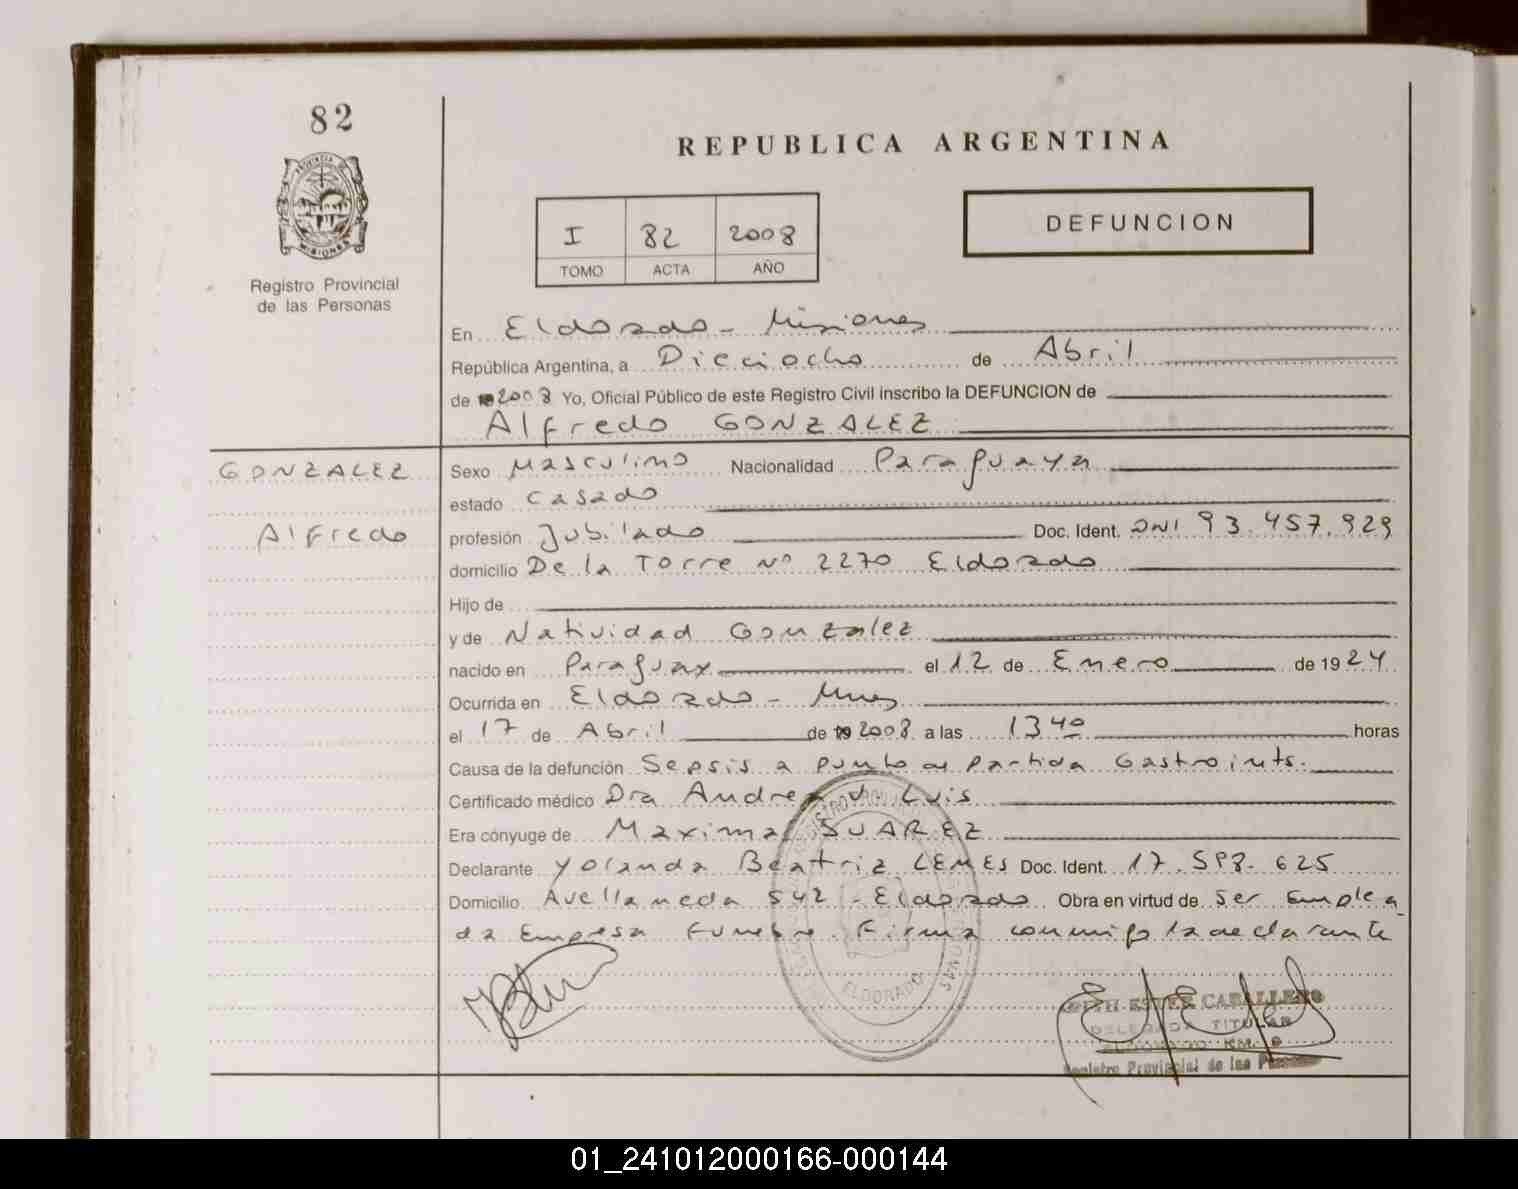 82
REPUBLICA ARGENTINA
I 82 2008
TOMO ACTA AÑO
DEFUNCION
PROVINCIA DE
MISIONES
Registro Provincial
de las Personas
En Eldorado - Misiones
República Argentina, a Dieciocho de Abril
de 2008 Yo, Oficial Público de este Registro Civil inscribo la DEFUNCION de
Alfredo GONZALEZ
GONZALEZ
Alfredo
Sexo Masculino Nacionalidad Paraguaya
estado Casado
profesión Jubilado Doc. Ident. DNI 93.457.929
domicilio De la Torre Nº 2270 Eldorado
Hijo de
y de Natividad Gonzalez
nacido en Paraguay el 12 de Enero de 1924
Ocurrida en Eldorado - Mnes
el 17 de Abril de 2008 a las 13 40 horas
Causa de la defunción Sepsis a punto de partida Gastroints.
Certificado médico Dra Andrea V. Luis
Era cónyuge de Maxima SUAREZ
Declarante Yolanda Beatriz LEMES Doc. Ident. 17.598.625
Domicilio Avellaneda 542 - Eldorado Obra en virtud de ser emplea
da Empresa Funebre. Firma conmigo la declarante
ELDORADO
ESTER CABALLERO
DELEGADA TITULAR
ELDORADO KM. 9
Registro Provincial de las Personas
01_241012000166-000144